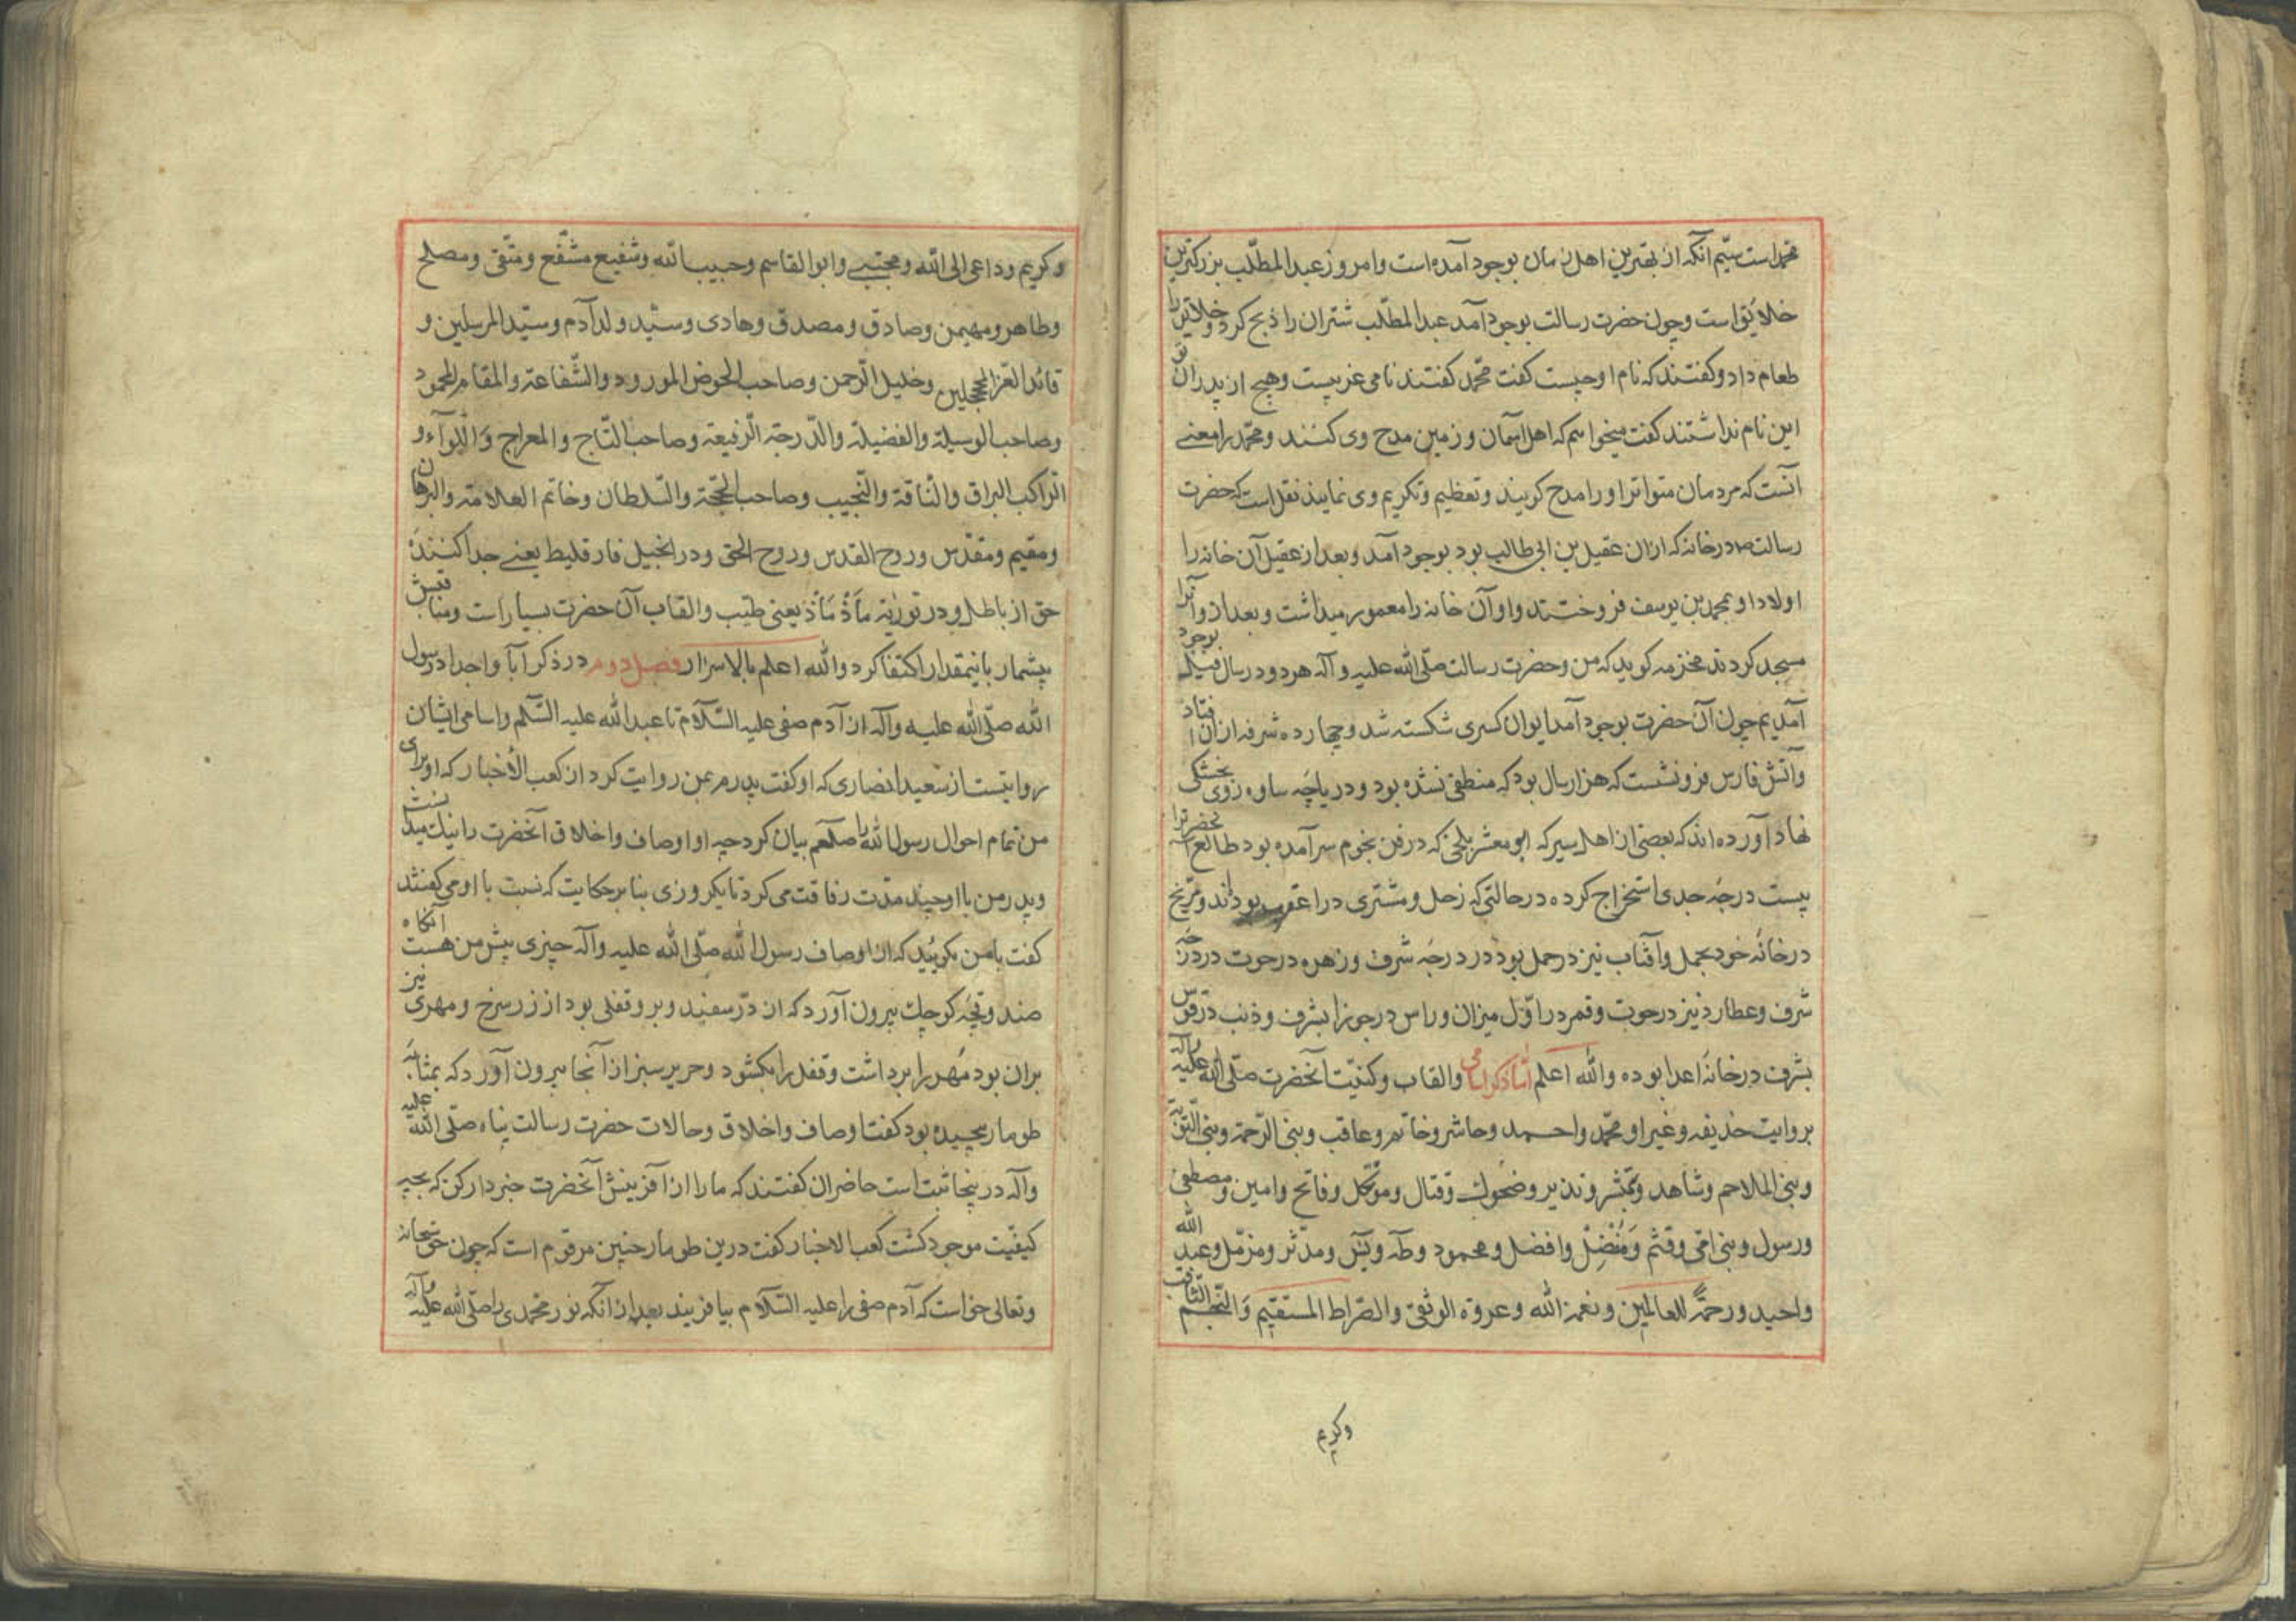 محمد است سیّم آنکه از بهترین اهل زمان بوجود آمده است وامروز عبدالمطّلب بزرکترین
خلایق است وچون حضرت رسالت بوجود آمد عبدالمطّلب شتران را ذبح کرد وخلایق را
طعام داد وکفتند که نام او چیست کفت محمّد کفتند نامی غریبست وهیچ از پدران تو
این نام نداشتند کفت میخواهم که اهل آسمان وزمین مدح وی کنند ومحمّد را معنے
آنست که مردمان متواتر اورا مدح کویند وتعظیم وتکریم وی نمایند نقل است که حضرت
رسالت در خانه که ازان عقیل بن ابی طالب بود بوجود آمد وبعد از عقیل آن خانه را
اولاد او بمحمد بن یوسف فروختند واو آن خانه را معمور میداشت وبعد از او آنرا
مسجد کردند مخزمه کوید که من وحضرت رسالت صلّی الله علیه وآله هر دو در سال فیل بوجود
آمدیم چون آن حضرت بوجود آمد ایوان کسری شکسته شد وچهارده شرفه ازان افتاد
وآتش فارس فرونشست که هزار سال بود که منطفی نشده بود ودریاچه ساوه روی بخشکی
نهاد آورده اند که بعضی از اهل سیر که ابو معشر بلخی که در فن نجوم سرآمده بود طالع آنحضرترا
بیست درجه جدی استخراج کرده در حالتی که زحل ومشتری در عقرب بودند ومرّیخ
در خانه خود بحمل وآفتاب نیز در حمل بود در درجه شرف وزهره در حوت در درجه
شرف وعطارد نیز در حوت وقمر در اوّل میزان وراس در جوزا بشرف وذنب در قوس
بشرف در خانه اعدا بوده والله اعلم امّا ذکر اسامی والقاب وکنیّت آنحضرت صلّی الله علیه وآله
بروایت حذیفه وغیر او محمّد واحمد وحاشر وخاتم وعاقب ونبی الرّحمة ونبی التّوبة
ونبی الملاحم وشاهد ومبشّر ونذیر وضحوك وقتال ومتوکّل وفاتح وامین ومصطفی
ورسول ونبی امّی وقثم ومُفْضِل وافضل ومحمود وطه ویٓس ومدّثر ومزمّل وعبد الله
واحید ورحمةً للعالمین ونعمة الله وعروة الوثقی والصّراط المستقیم وَالنّجم الثّاقب
وکریم
وکریم وداعی الی الله ومجتبے وابو القاسم وحبیب الله وشفیع مشفّع ومتّقی ومصلح
وطاهر ومهیمن وصادق ومصدق وهادی وسیّد ولد آدم وسیّد المرسلین و
قائد الغرّ المحجلین وخلیل الرّحمن وصاحب الحوض المورود والشّفاعة والمقام المحمود
وصاحب الوسیلة والفضیلة والدّرجة الرّفیعة وصاحب التّاج والمعراج وَاللّوآء و
الرّاکب البراق والنّاقة والنّجیب وصاحب الحجّة والسّلطان وخاتم العلامة والبرهان
ومقیم ومقدّس وروح القدس وروح الحق ودر انجیل فارقلیط یعنے جدا کنندهٔ
حق از باطل ودر توریة مأذُ مَأذ یعنی طیّب والقاب آن حضرت بسیار است ومناقبش
بیشمار باینمقدار اکتفا کرد والله اعلم بالاسرار فصل دوم در ذکر آبا واجداد رسول
الله صلّی الله علیه وآله از آدم صفی علیه السّلام تا عبدالله علیه السّلم واسامی ایشان
روایتست از سعید انصاری که او کفت پدرم بمن روایت کرد از کعب الأخبار که او برای
من تمام احوال رسول الله را صلعم بیان کرد چه او اوصاف واخلاق آنحضرت را نیك میدانست
وپدر من با او چند مدّت رفاقت می کرد تا یکروزی بنا بر حکایت که نسبت با او می کفتند
کفت با من مکوئید که از اوصاف رسول الله صلّی الله علیه وآله چیزی پیش من هست آنکاه
صندوقچه کوچك بیرون آورد که از درّ سفید وبرو قفلی بود از زر سرخ ومهری نیز
بران بود مُهر را برداشت وقفل را بکشود وحریر سبز از آنجا بیرون آورد که بمثابه
طومار پیچیده بود کفت اوصاف واخلاق وحالات حضرت رسالت پناه صلّی الله علیه
وآله در ینجا ثبت است حاضران کفتند که مارا از آفرینش آنحضرت خبردار کن که بچه
کیفیّت موجود کشت کعب الاخبار کفت درین طومار چنین مرقوم است که چون حق سبحانه
وتعالی خواست که آدم صفی را علیه السّلام بیافریند بعد از آنکه نور محمّدی را صلّی الله علیه وآله